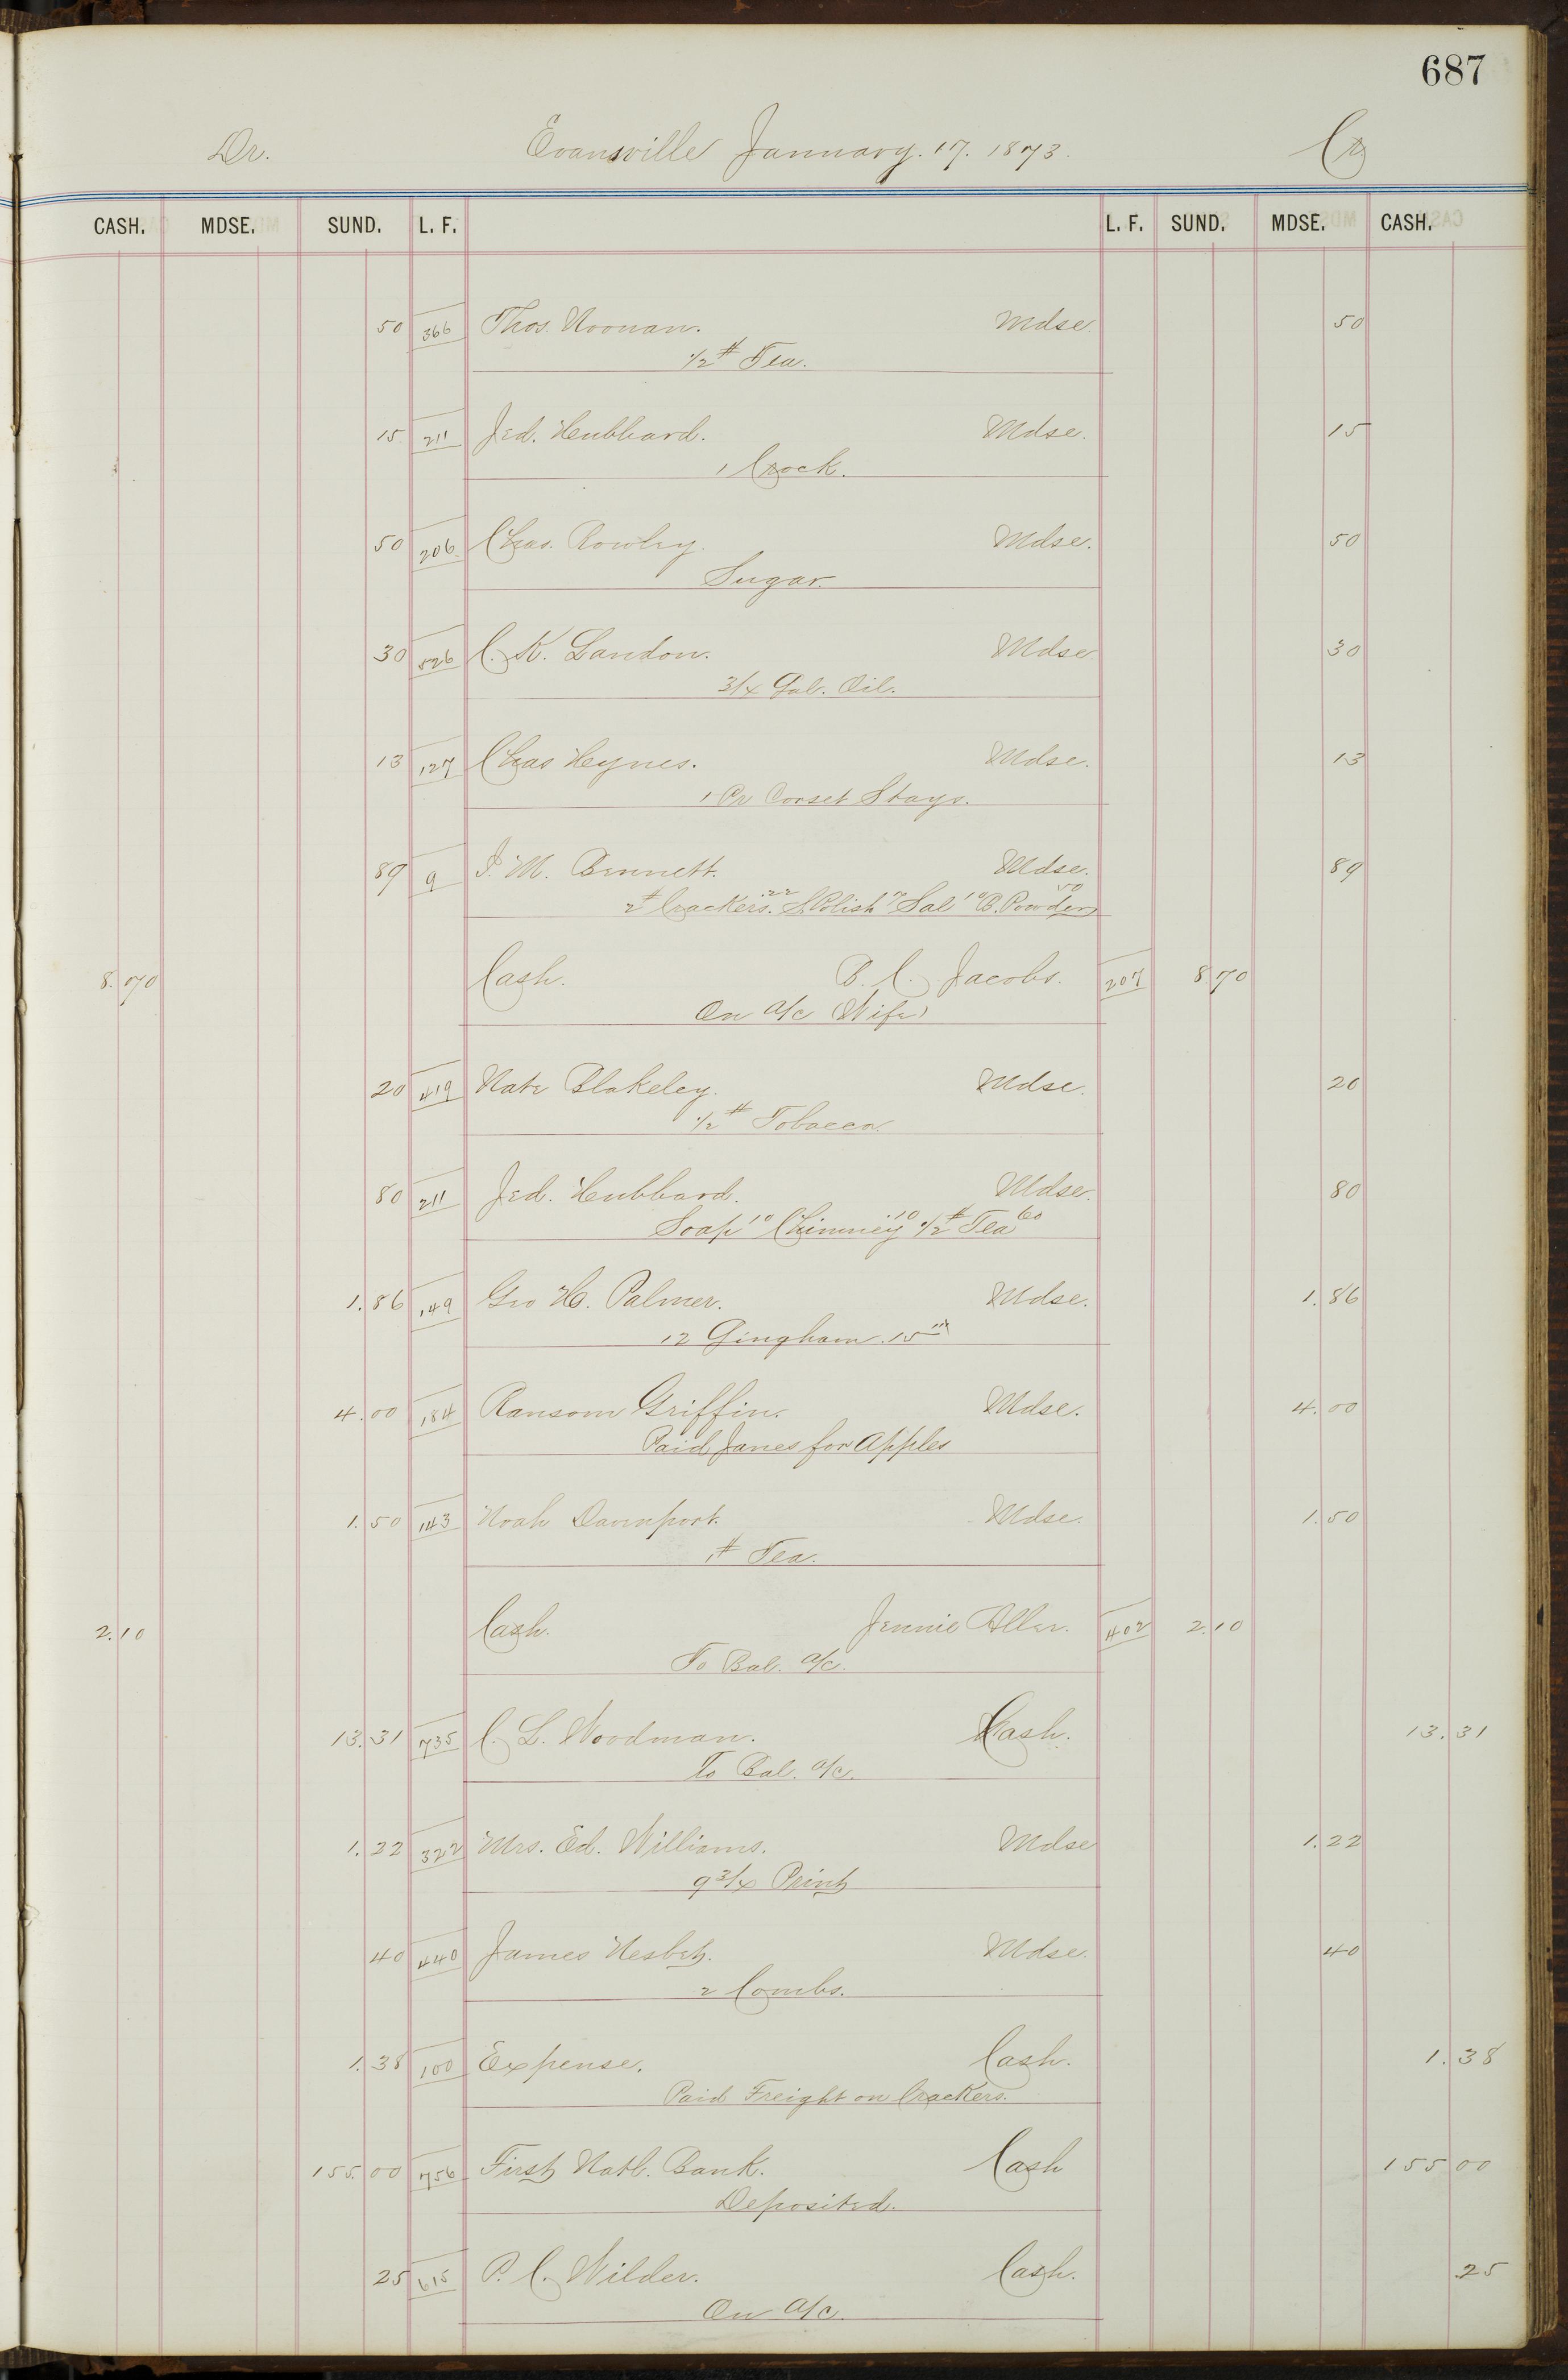 687
Dr. Evansville January. 17. 1873. Cr
CASH. MDSE. SUND. L. F. L. F. SUND. MDSE. CASH.
50 366 Thos. Noonan. Mdse. 50
1/2 # Tea.
15 211 Jed. Hubbard. Mdse. 15
1 Crock.
50 206 Chas. Rowley. Mdse. 50
Sugar
30 526 C. K. Landon. Mdse 30
3/4 Gal. Oil.
13 127 Chas Heynes. Mdse. 13
1 Pr Corset Stays.
89 9 I. M. Bennett. Mdse. 89
2# Crackers. 22 S. Polish 7 Sal 10 B. Powder 50
8.70 Cash. B. C. Jacobs. 207 8.70
On a/c (Wife)
20 419 Nate Blakeley. Mdse. 20
1/2 # Tobacco.
80 211 Jed. Hubbard. Mdse. 80
Soap 10 Chimney 10 1/2 # Tea 60
1.86 149 Geo H. Palmer. Mdse. 1.86
12 Gingham. 15 1/2
4.00 184 Ransom Griffin. Mdse. 4.00
Paid Janes for Apples
1.50 143 Noah Davenport. Mdse. 1.50
1# Tea.
2.10 Cash. Jennie Aller. 402 2.10
To Bal. a/c.
13.31 735 C. L. Woodman. Cash. 13.31
To Bal. a/c.
1.22 322 Mrs. Ed. Williams. Mdse 1.22
9 3/4 Print
40 440 James Nesbit. Mdse. 40
2 Combs.
1.38 100 Expense. Cash. 1.38
Paid Freight on Crackers.
155.00 756 First Natl. Bank. Cash 155 00
Deposited.
25 615 P. C. Wilder. Cash. .25
On a/c.